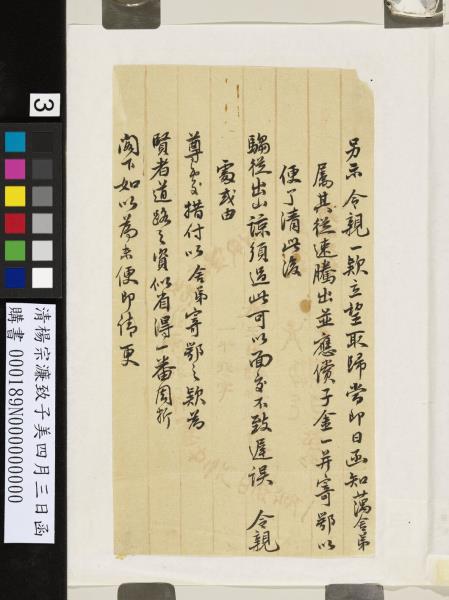 另示 令親一款立望取歸當即日函知藕舍弟
屬其從速騰出並應償子金一并寄鄂以
便了清此後
騶從出山諒須過此可以面交不致遲誤 令親
處或由
尊處措付以舍弟寄鄂之款為
賢者道路之資似省得一番周折
閣下如以為未便即請更
3
清楊宗濂致子美四月三日函
購書 000189N000000000